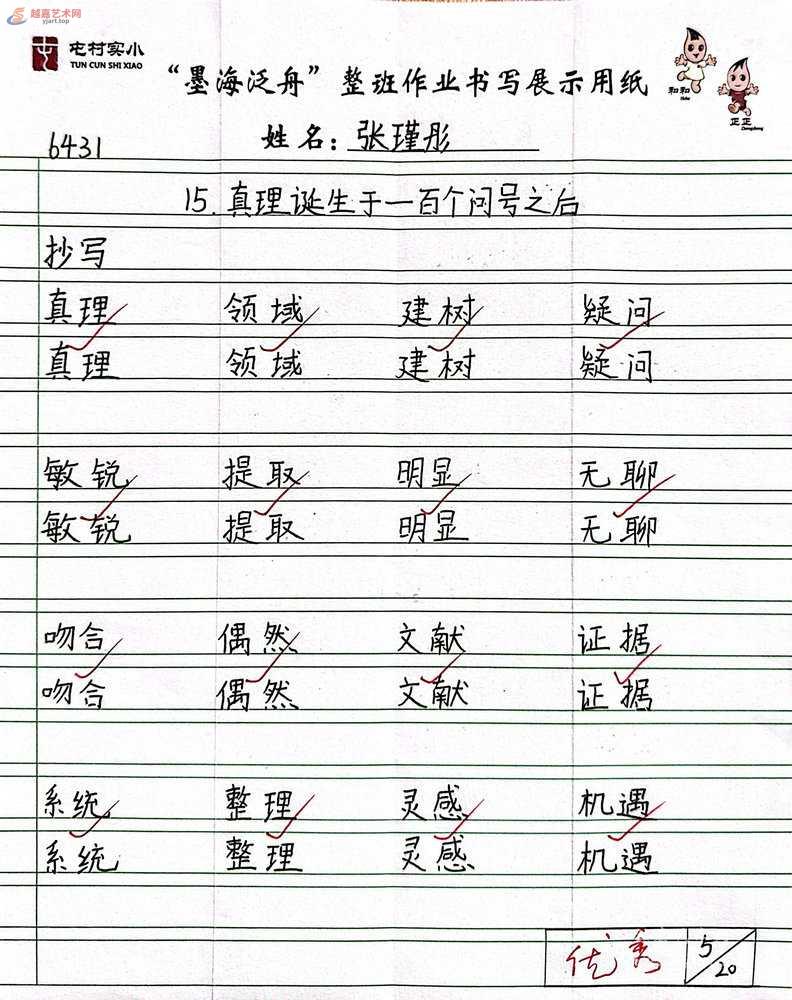 越嘉艺术网
yjart.top
屯村实小
TUN CUN SHI XIAO
“墨海泛舟”整班作业书写展示用纸
和和
Hehe
正正
Zhengzheng
6431
姓名：张瑾彤
15.真理诞生于一百个问号之后
抄写
真理 领域 建树 疑问
真理 领域 建树 疑问
敏锐 提取 明显 无聊
敏锐 提取 明显 无聊
吻合 偶然 文献 证据
吻合 偶然 文献 证据
系统 整理 灵感 机遇
系统 整理 灵感 机遇
优秀 5/20